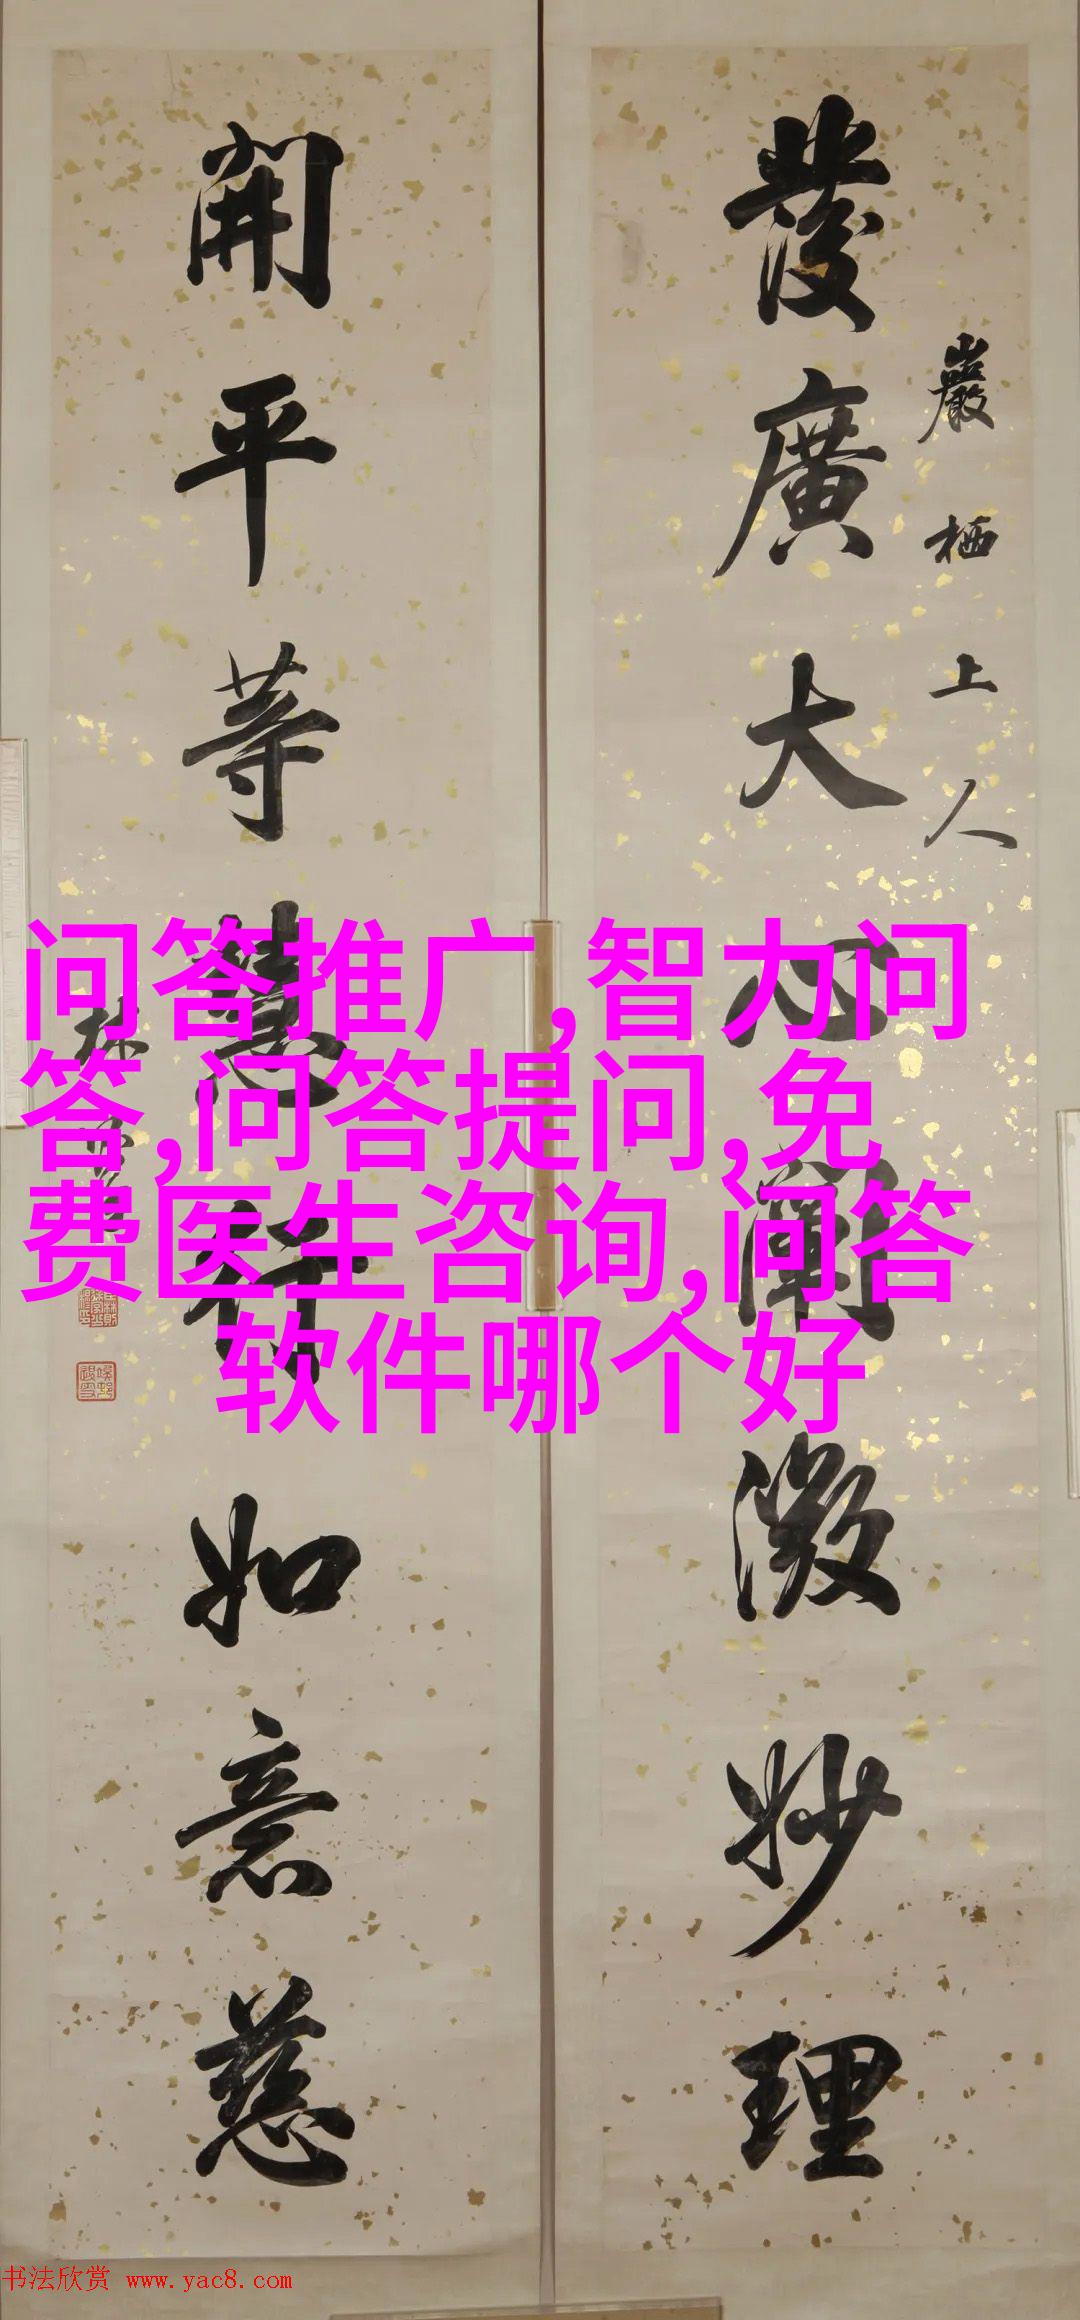 發廣大心闡微妙理
巖栖上人
開平等慧行如意慈
林
问答推广,智力问
答,问答提问,免
费医生咨询,问答
软件哪个好
书法欣赏 www.yac8.com